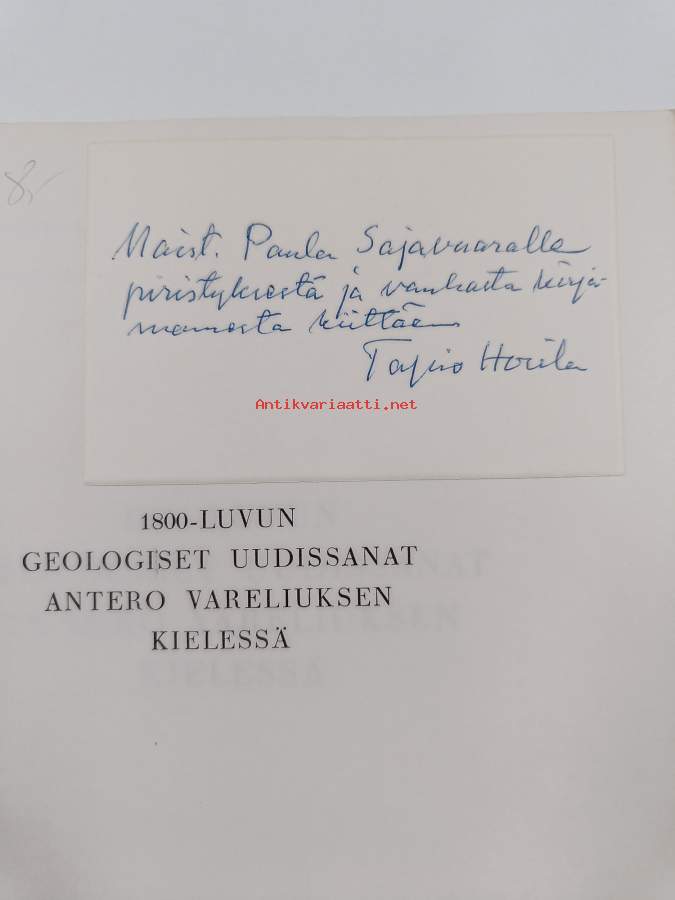 8,-
Maist. Paula Sajavaaralle
piristyksestä ja vanhasta kirja-
mamosta kiittäen
Tapio Horila
Antikvariaatti.net
1800-LUVUN
GEOLOGISET UUDISSANAT
ANTERO VARELIUKSEN
KIELESSÄ